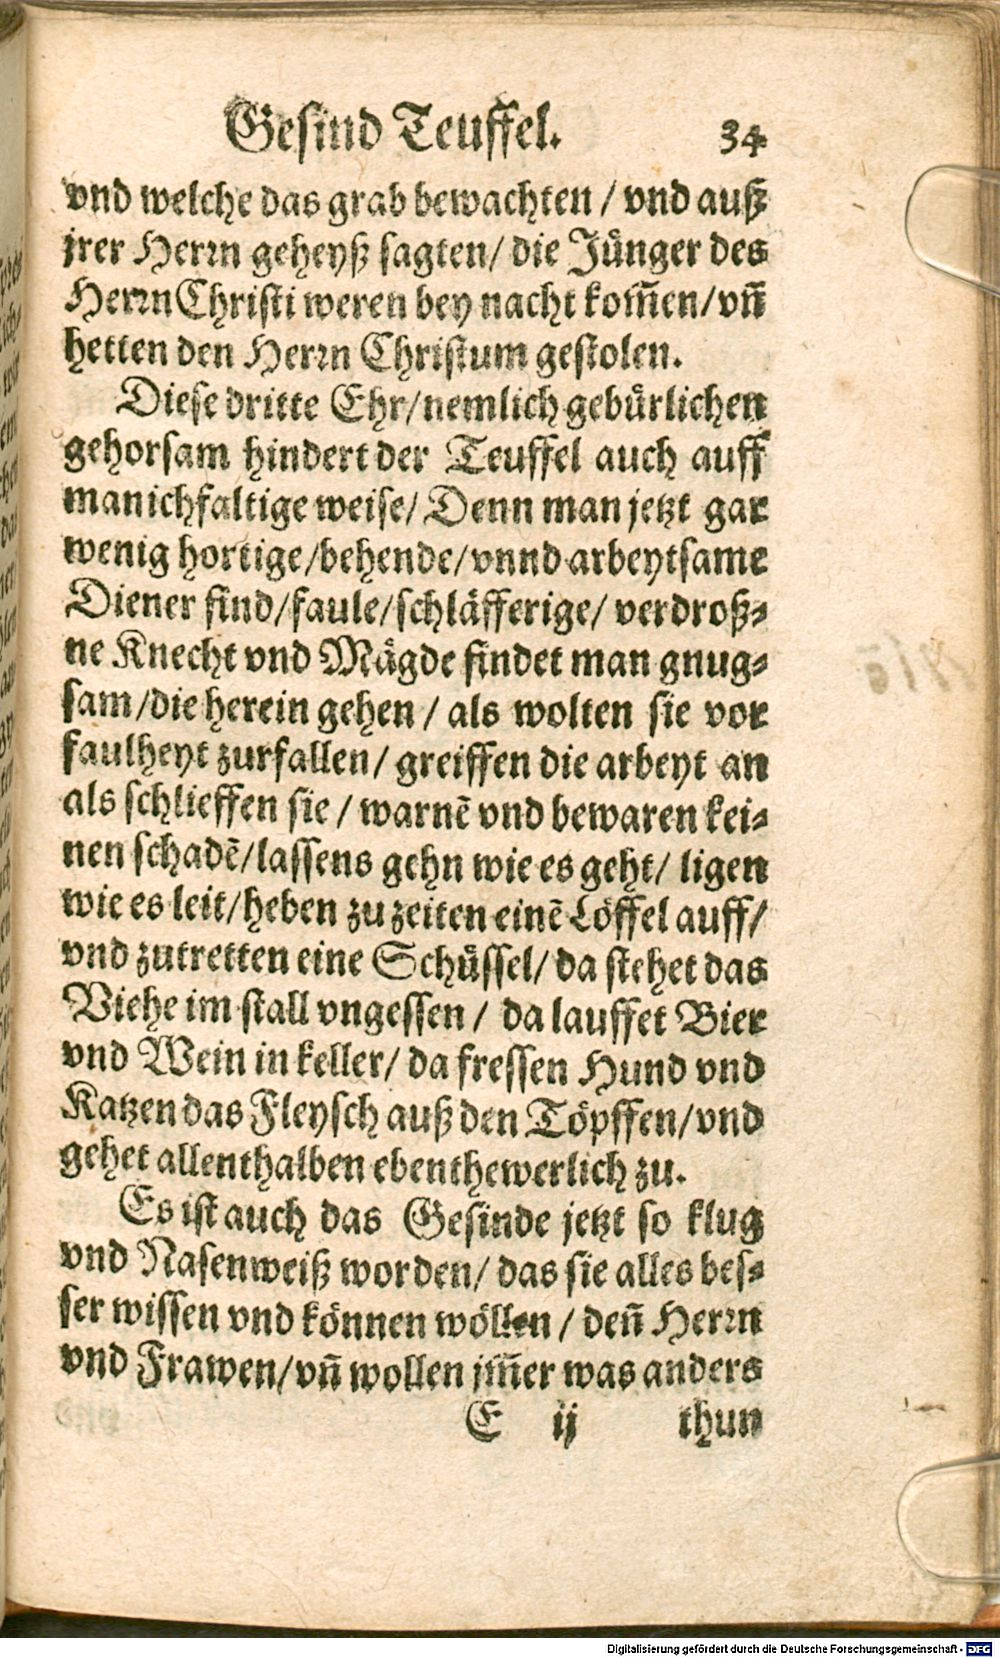 Gesind Teuffel. 34
vnd welche das grab bewachten / vnd auß
jrer Herrn geheyß sagten/ die Jünger des
Herrn Christi weren bey nacht kom̃en/ vñ
hetten den Herrn Christum gestolen.
Diese dritte Ehr/nemlich gebürlichen
gehorsam hindert der Teuffel auch auff
manichfaltige weise/ Denn man jetzt gar
wenig hortige/behende/vnnd arbeytsame
Diener find/faule/schläfferige/ verdroß⸗
ne Knecht vnd Mägde findet man gnug⸗
sam/die herein gehen / als wolten sie vor
faulheyt zurfallen/ greiffen die arbeyt an
als schlieffen sie / warnẽ vnd bewaren kei⸗
nen schadẽ/lassens gehn wie es geht/ ligen
wie es leit/heben zu zeiten einẽ Löffel auff/
vnd zutretten eine Schüssel/ da stehet das
Viehe im stall vngessen / da lauffet Bier
vnd Wein in keller/ da fressen Hund vnd
Katzen das Fleysch auß den Töpffen/vnd
gehet allenthalben ebenthewerlich zu.
Es ist auch das Gesinde jetzt so klug
vnd Nasenweiß worden/ das sie alles bes⸗
ser wissen vnd können wöllen / deñ Herrn
vnd Frawen/vñ wollen jm̃er was anders
E ij thun
Digitalisierung gefördert durch die Deutsche Forschungsgemeinschaft - DFG